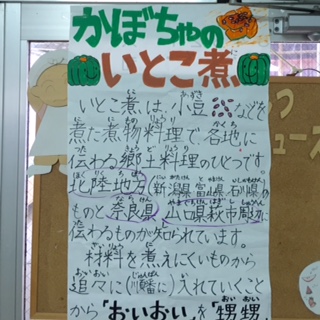 かぼちゃの
いとこ煮
いとこ煮は、小豆などを
煮た煮物料理で各地に
伝わる郷土料理のひとつです。
北陸地方(新潟県富山県石川県)の
ものと奈良県、山口県萩市周辺に
伝わるものが知られています。
材料を煮えにくいものから
追々に(順番に)入れていくこと
から「おいおい」を「甥甥」